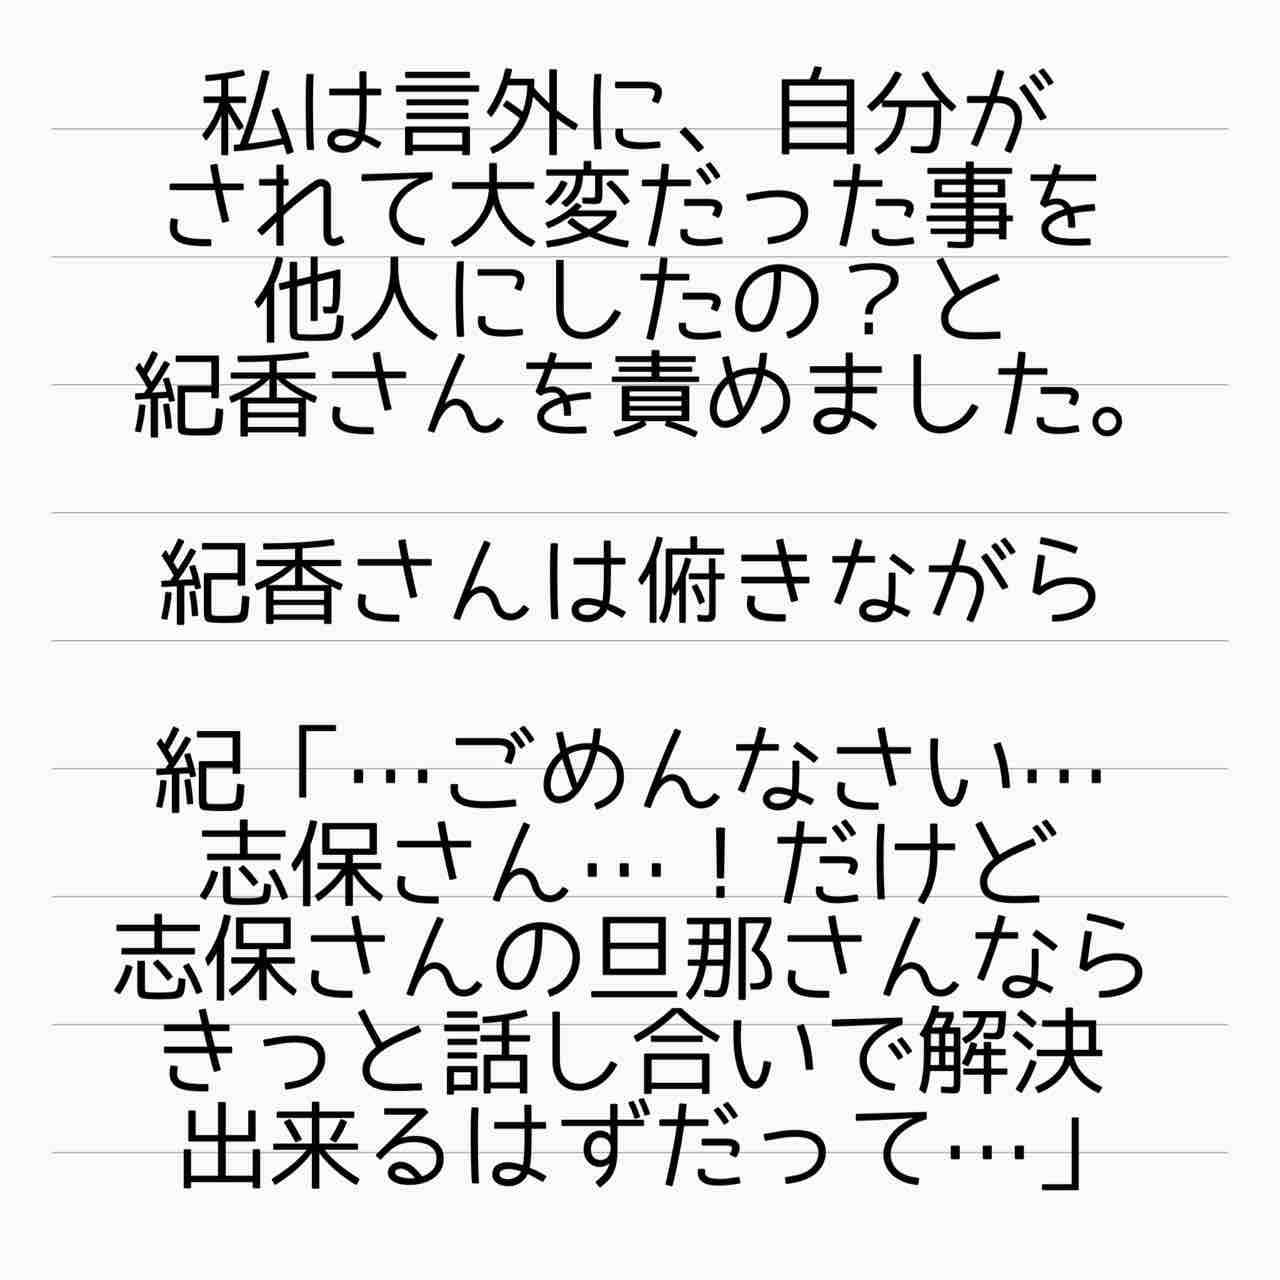 私は言外に、自分が
されて大変だった事を
他人にしたの？と
紀香さんを責めました。
紀香さんは俯きながら
紀「…ごめんなさい…
志保さん…！だけど
志保さんの旦那さんなら
きっと話し合いで解決
出来るはずだって…」